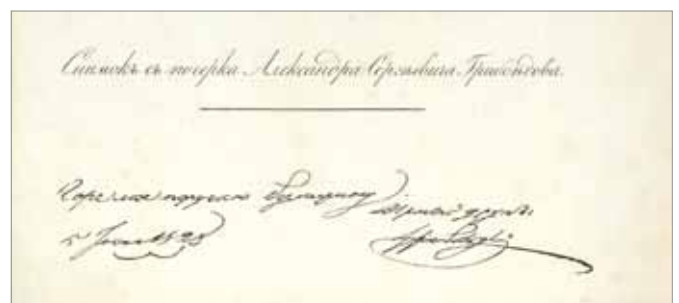 Снимокъ съ почерка Александра Сергѣевича Грибоѣдова.
Горе мое поручаю Булгарину
Вѣрный другъ
5 Іюня 1828 Грибоѣдовъ